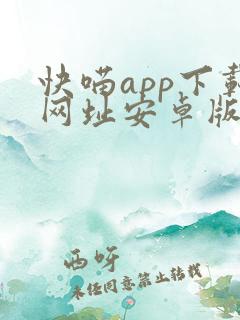 快喵app下载
网址安卓版
西呀
未经同意禁止转载